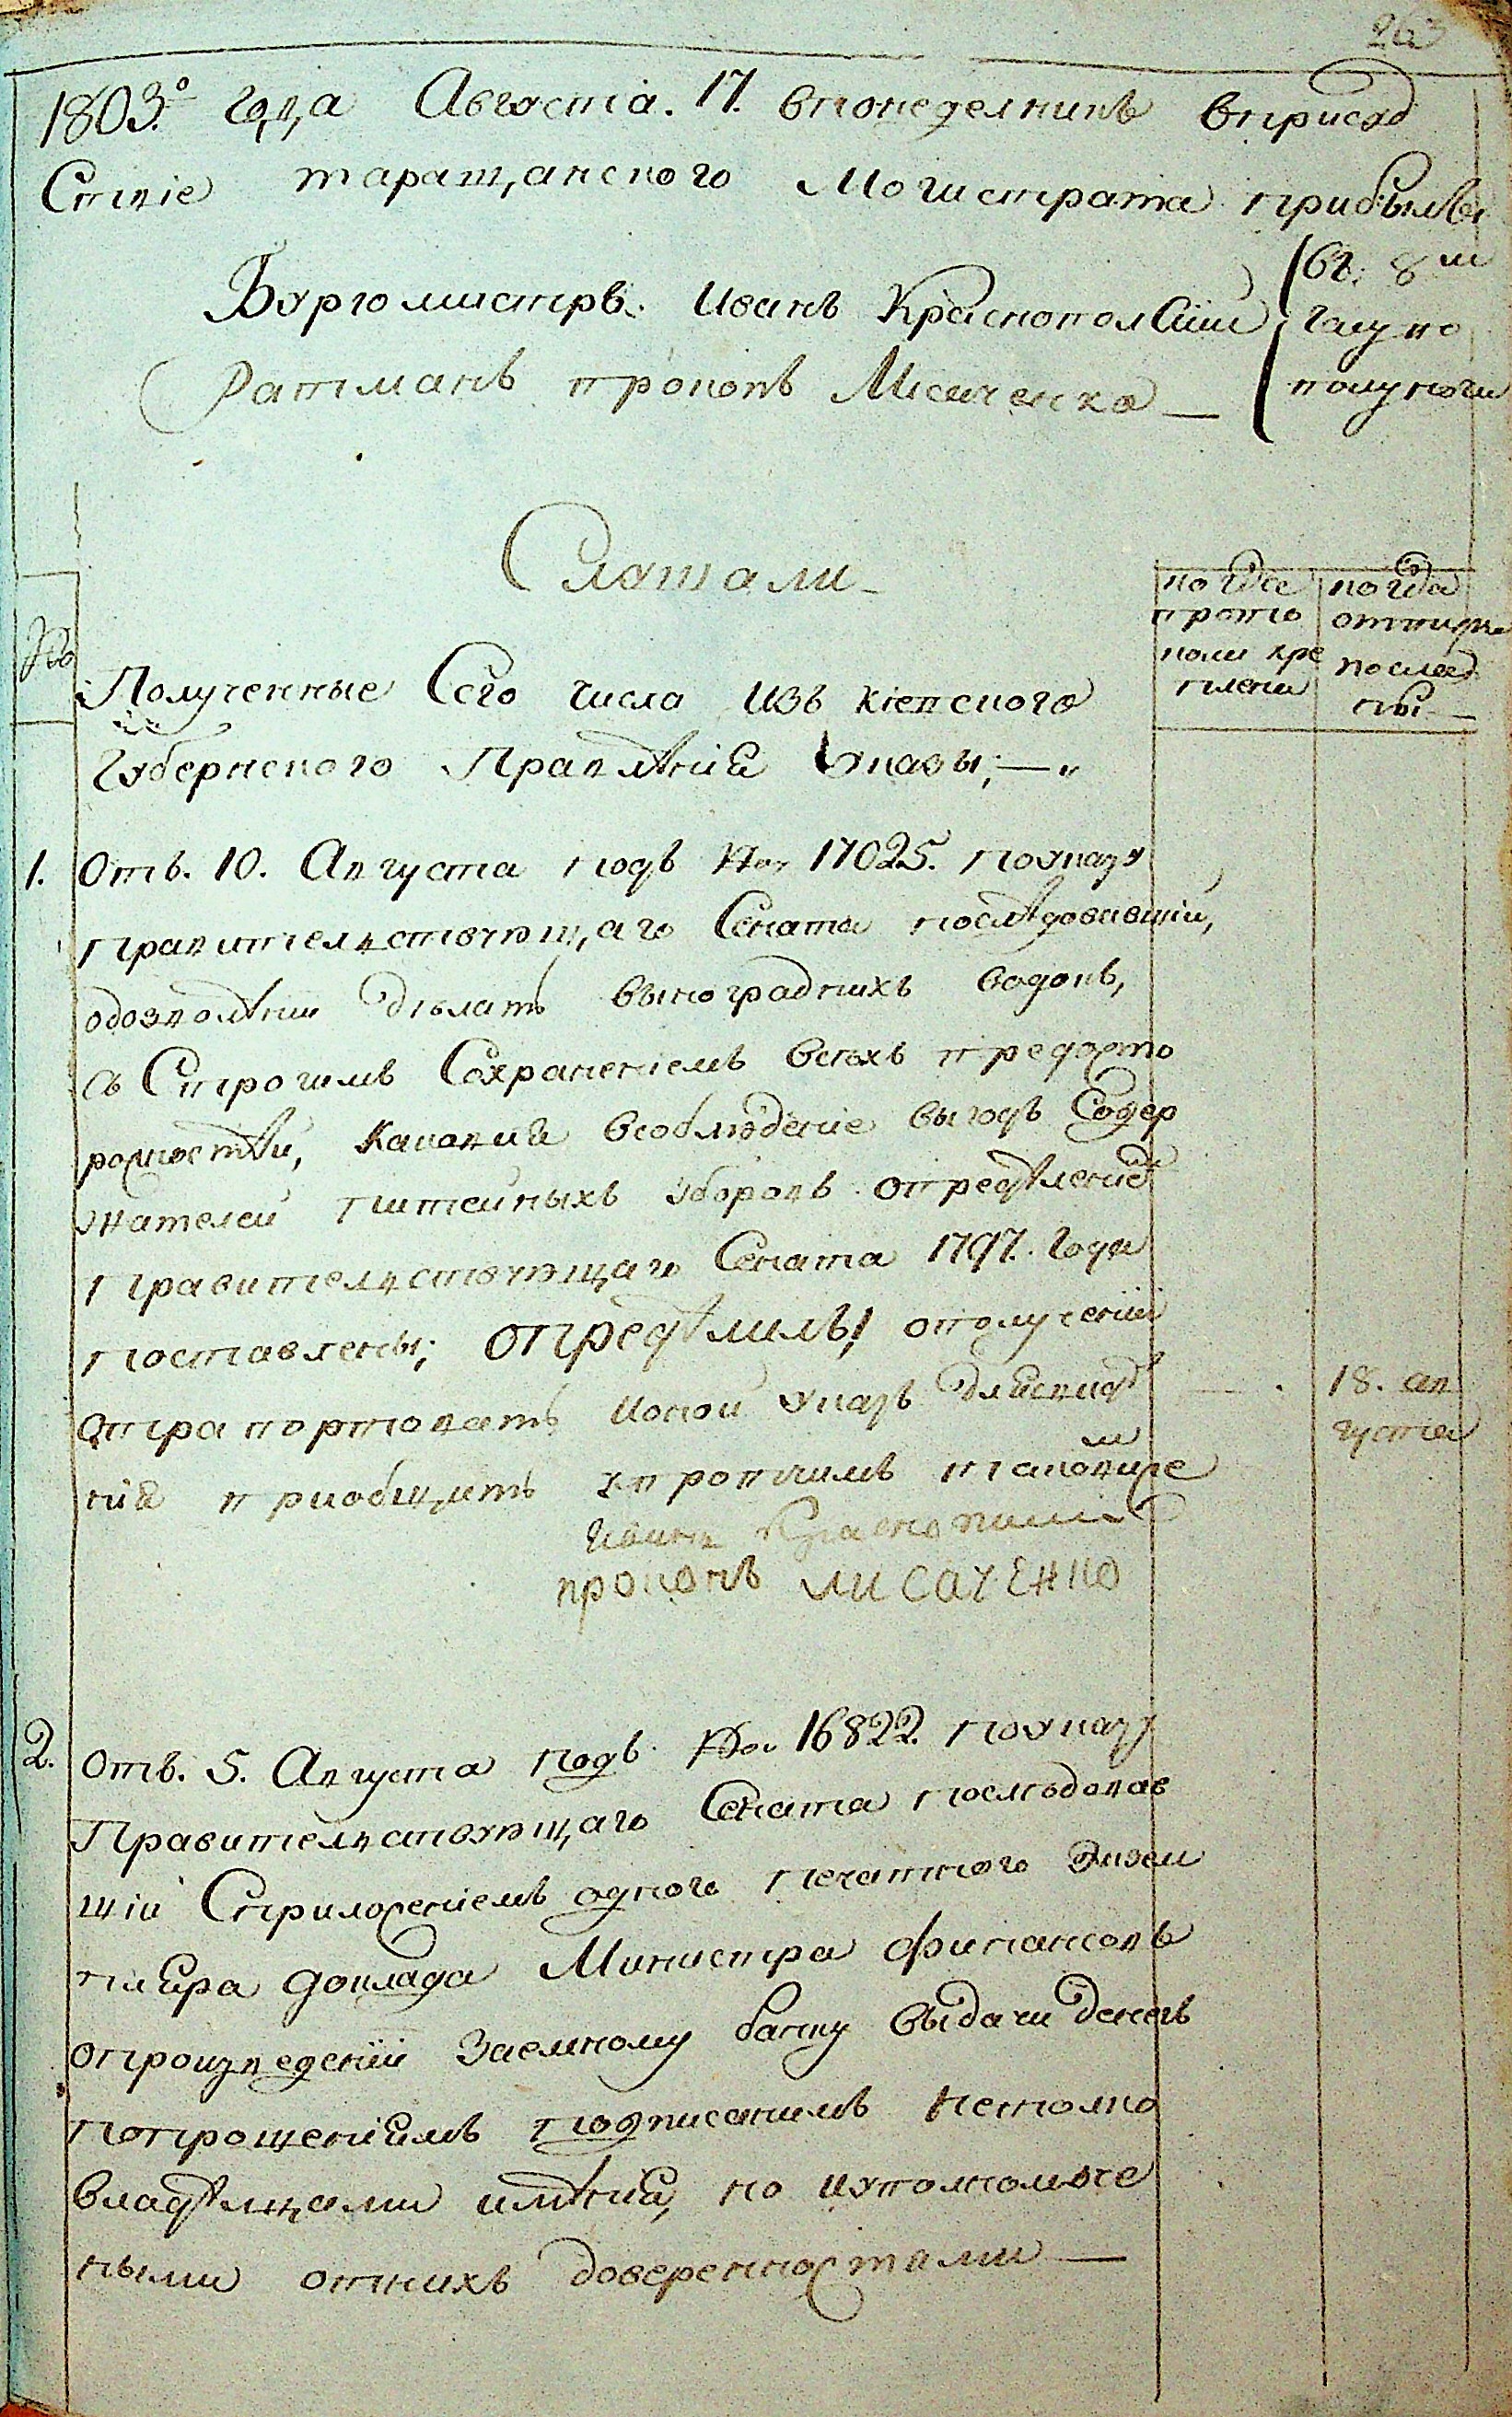 263
1803.º года Августа. 17. впонеделникъ вприсуд
Ствіе таращанского Могистрата прибыли
Бургомистръ. Иванъ Краснополскій
Ратманъ прокопъ Лисиченко —
въ. 8м
часу по
полуночи
Слушали —
№
когда
прото
коли кре
плени
когда
отпуски
послед
ны —
Полученные Сего числа изъ кіевского
Губернского Правлѣнія Указы; —
1. Отъ. 10. Августа подъ No 17025. поуказу
правителствующаго Сената послѣдовавшій,
одозволѣнии дѣлать выноградныхъ водокъ,
съ Строгимъ Сохраненіемъ всѣхъ предосто
рожностѣй, каковия всоблюдение выгодъ Содер
жателей питейныхъ зборовъ опредѣление
Правителствующаго Сената 1797. года
поставлены; опредѣлилы, ополученіи
отрапортовать иокой указъ для свидѣ
нія приобщить кпротчимъ таковимже
18. ав
густа
Иванъ Краснополский
прокопъ лисаченко
2. Отъ. 5. Августа подъ No 16822. поуказу
Правителствующаго Сената последовав
шій Сприложеніемъ одного печатного Экзем
пляра доклада Министра финансовъ
опроизведеніи Заемному банку выдачи денегъ
попрошеніямъ подписанимъ нетолко
владѣлцами имѣнія, но иуполномоче
ными отнихъ доверенностями —